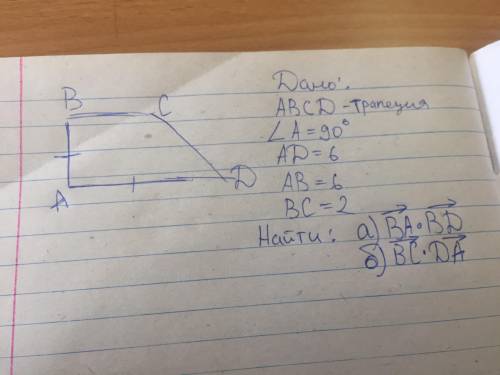 B C
A D
Дано:
ABCD - трапеция
∠A = 90°
AD = 6
AB = 6
BC = 2
Найти: а) $\overrightarrow{BA} \cdot \overrightarrow{BD}$
б) $\overrightarrow{BC} \cdot \overrightarrow{DA}$